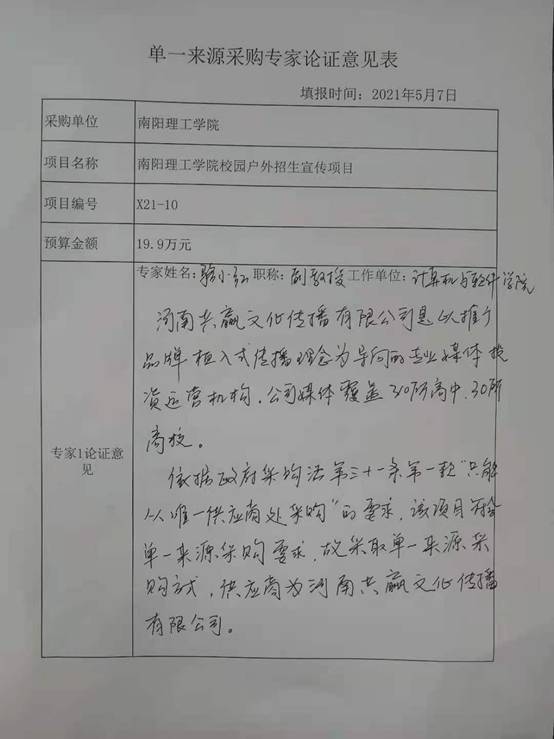 单一来源采购专家论证意见表
填报时间: 2021年5月7日
采购单位 南阳理工学院
项目名称 南阳理工学院校园户外招生宣传项目
项目编号 X21-10
预算金额 19.9万元
专家1论证意见
专家姓名: 小红 职称: 副教授 工作单位: 计算机与软件学院
河南共赢文化传播有限公司是以推广
品牌植入式传播理念为导向的专业媒体投
资运营机构。公司媒体覆盖30所高中、30所
高校。
依据政府采购法第三十一条第一款“只能
从唯一供应商处采购”的要求,该项目符合
单一来源采购要求,故采取单一来源采
购方式,供应商为河南共赢文化传播
有限公司。